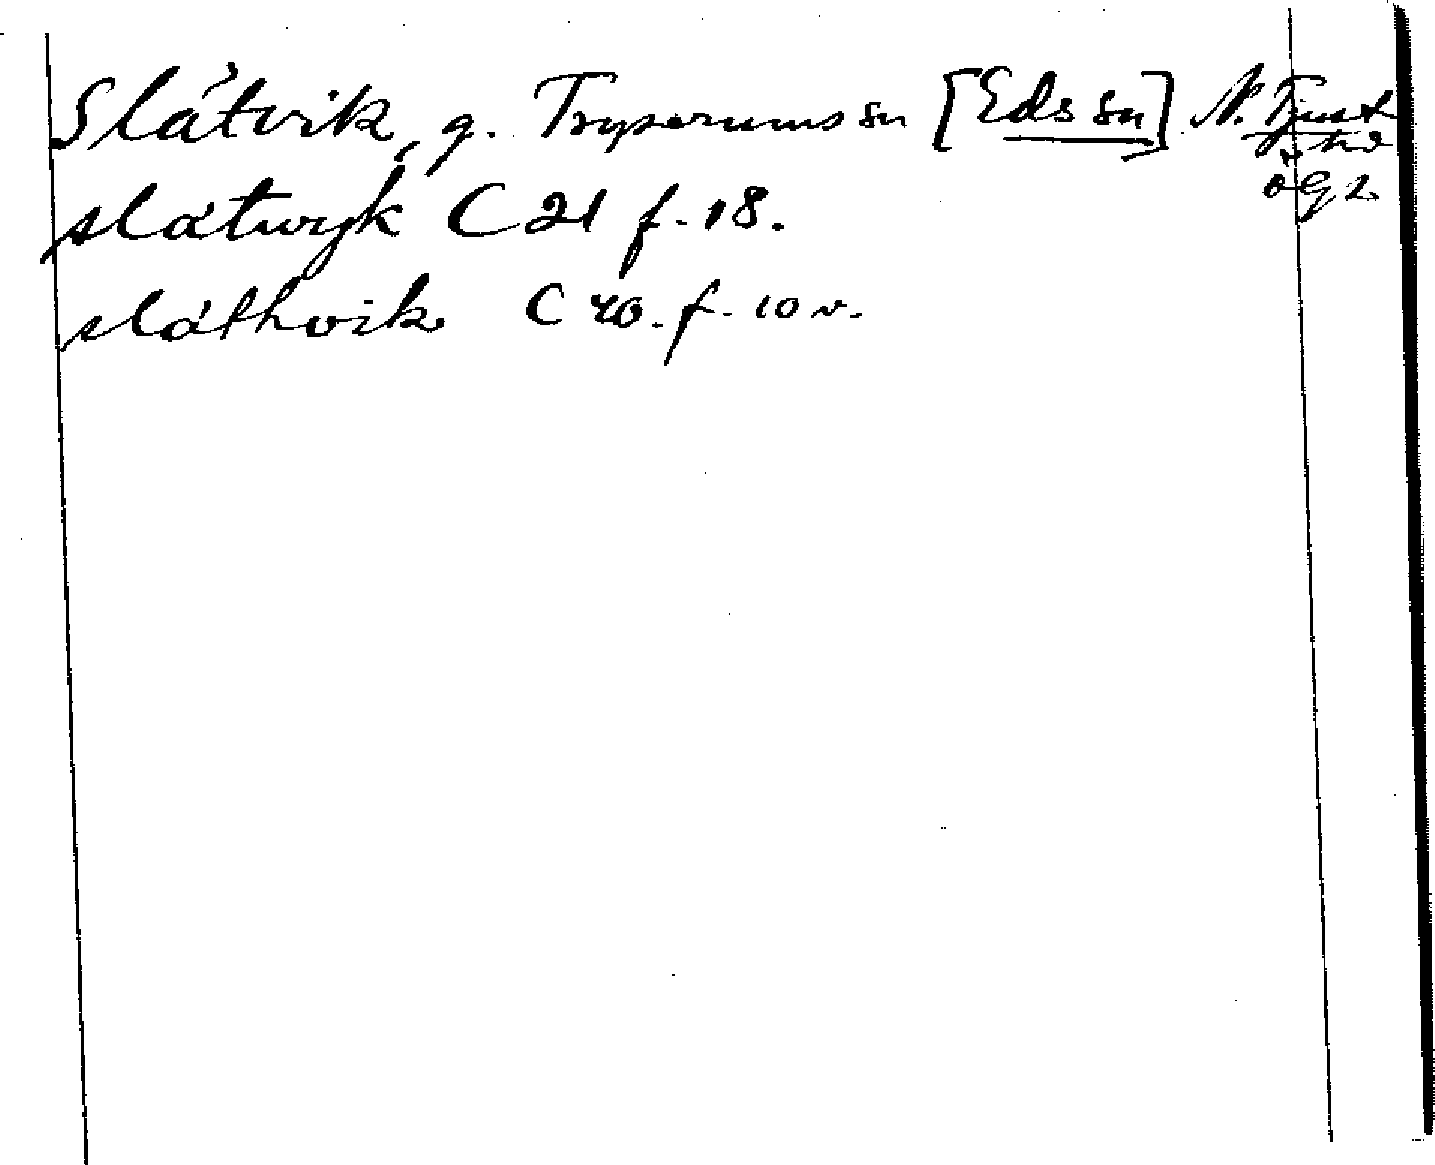 Slátvik, g. Tryserums sn [Eds sn] N. Tjust
hd
ögl
slatwyk C 21 f. 18.
slathvik C 20. f. 10 v.